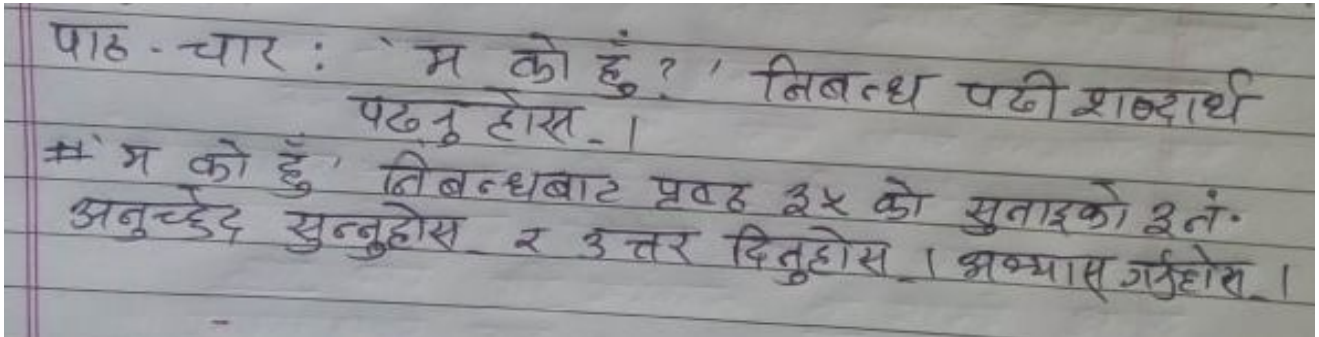 पाठ - चार : 'म को हुँ ? ' निबन्ध पढी शब्दार्थ
पढ्नु होस् ।
# 'म को हुँ' निबन्धबाट पृष्ठ ३५ को सुनाइको ३ नं.
अनुच्छेद सुन्नुहोस् र उत्तर दिनुहोस् । अभ्यास गर्नुहोस् ।